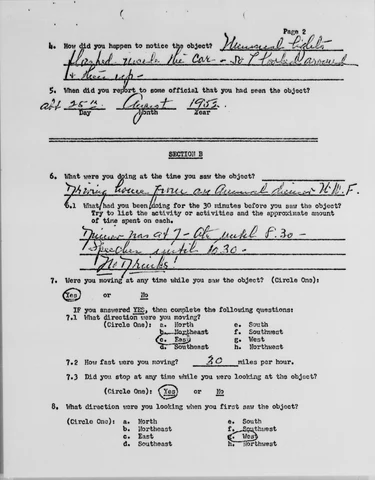 Page 2
4. How did you happen to notice the object? Unusual lights
flashed inside the car - so I looked around
& then up -
5. When did you report to some official that you had seen the object?
abt 25th August 1952.
Day Month Year
SECTION B
6. What were you doing at the time you saw the object?
Driving home from an Annual dinner N.W.F.
6.1 What had you been doing for the 30 minutes before you saw the object?
Try to list the activity or activities and the approximate amount
of time spent on each.
Dinner was at 7 - Ate until 8:30 -
Speeches until 10:30 -
!No Drinks!
7. Were you moving at any time while you saw the object? (Circle One):
Yes or No
IF you answered YES, then complete the following questions:
7.1 What direction were you moving?
(Circle One): a. North e. South
b. Northeast f. Southwest
c. East g. West
d. Southeast h. Northwest
7.2 How fast were you moving? 20 miles per hour.
7.3 Did you stop at any time while you were looking at the object?
(Circle One): Yes or No
8. What direction were you looking when you first saw the object?
(Circle One): a. North e. South
b. Northeast f. Southwest
c. East g. West
d. Southeast h. Northwest